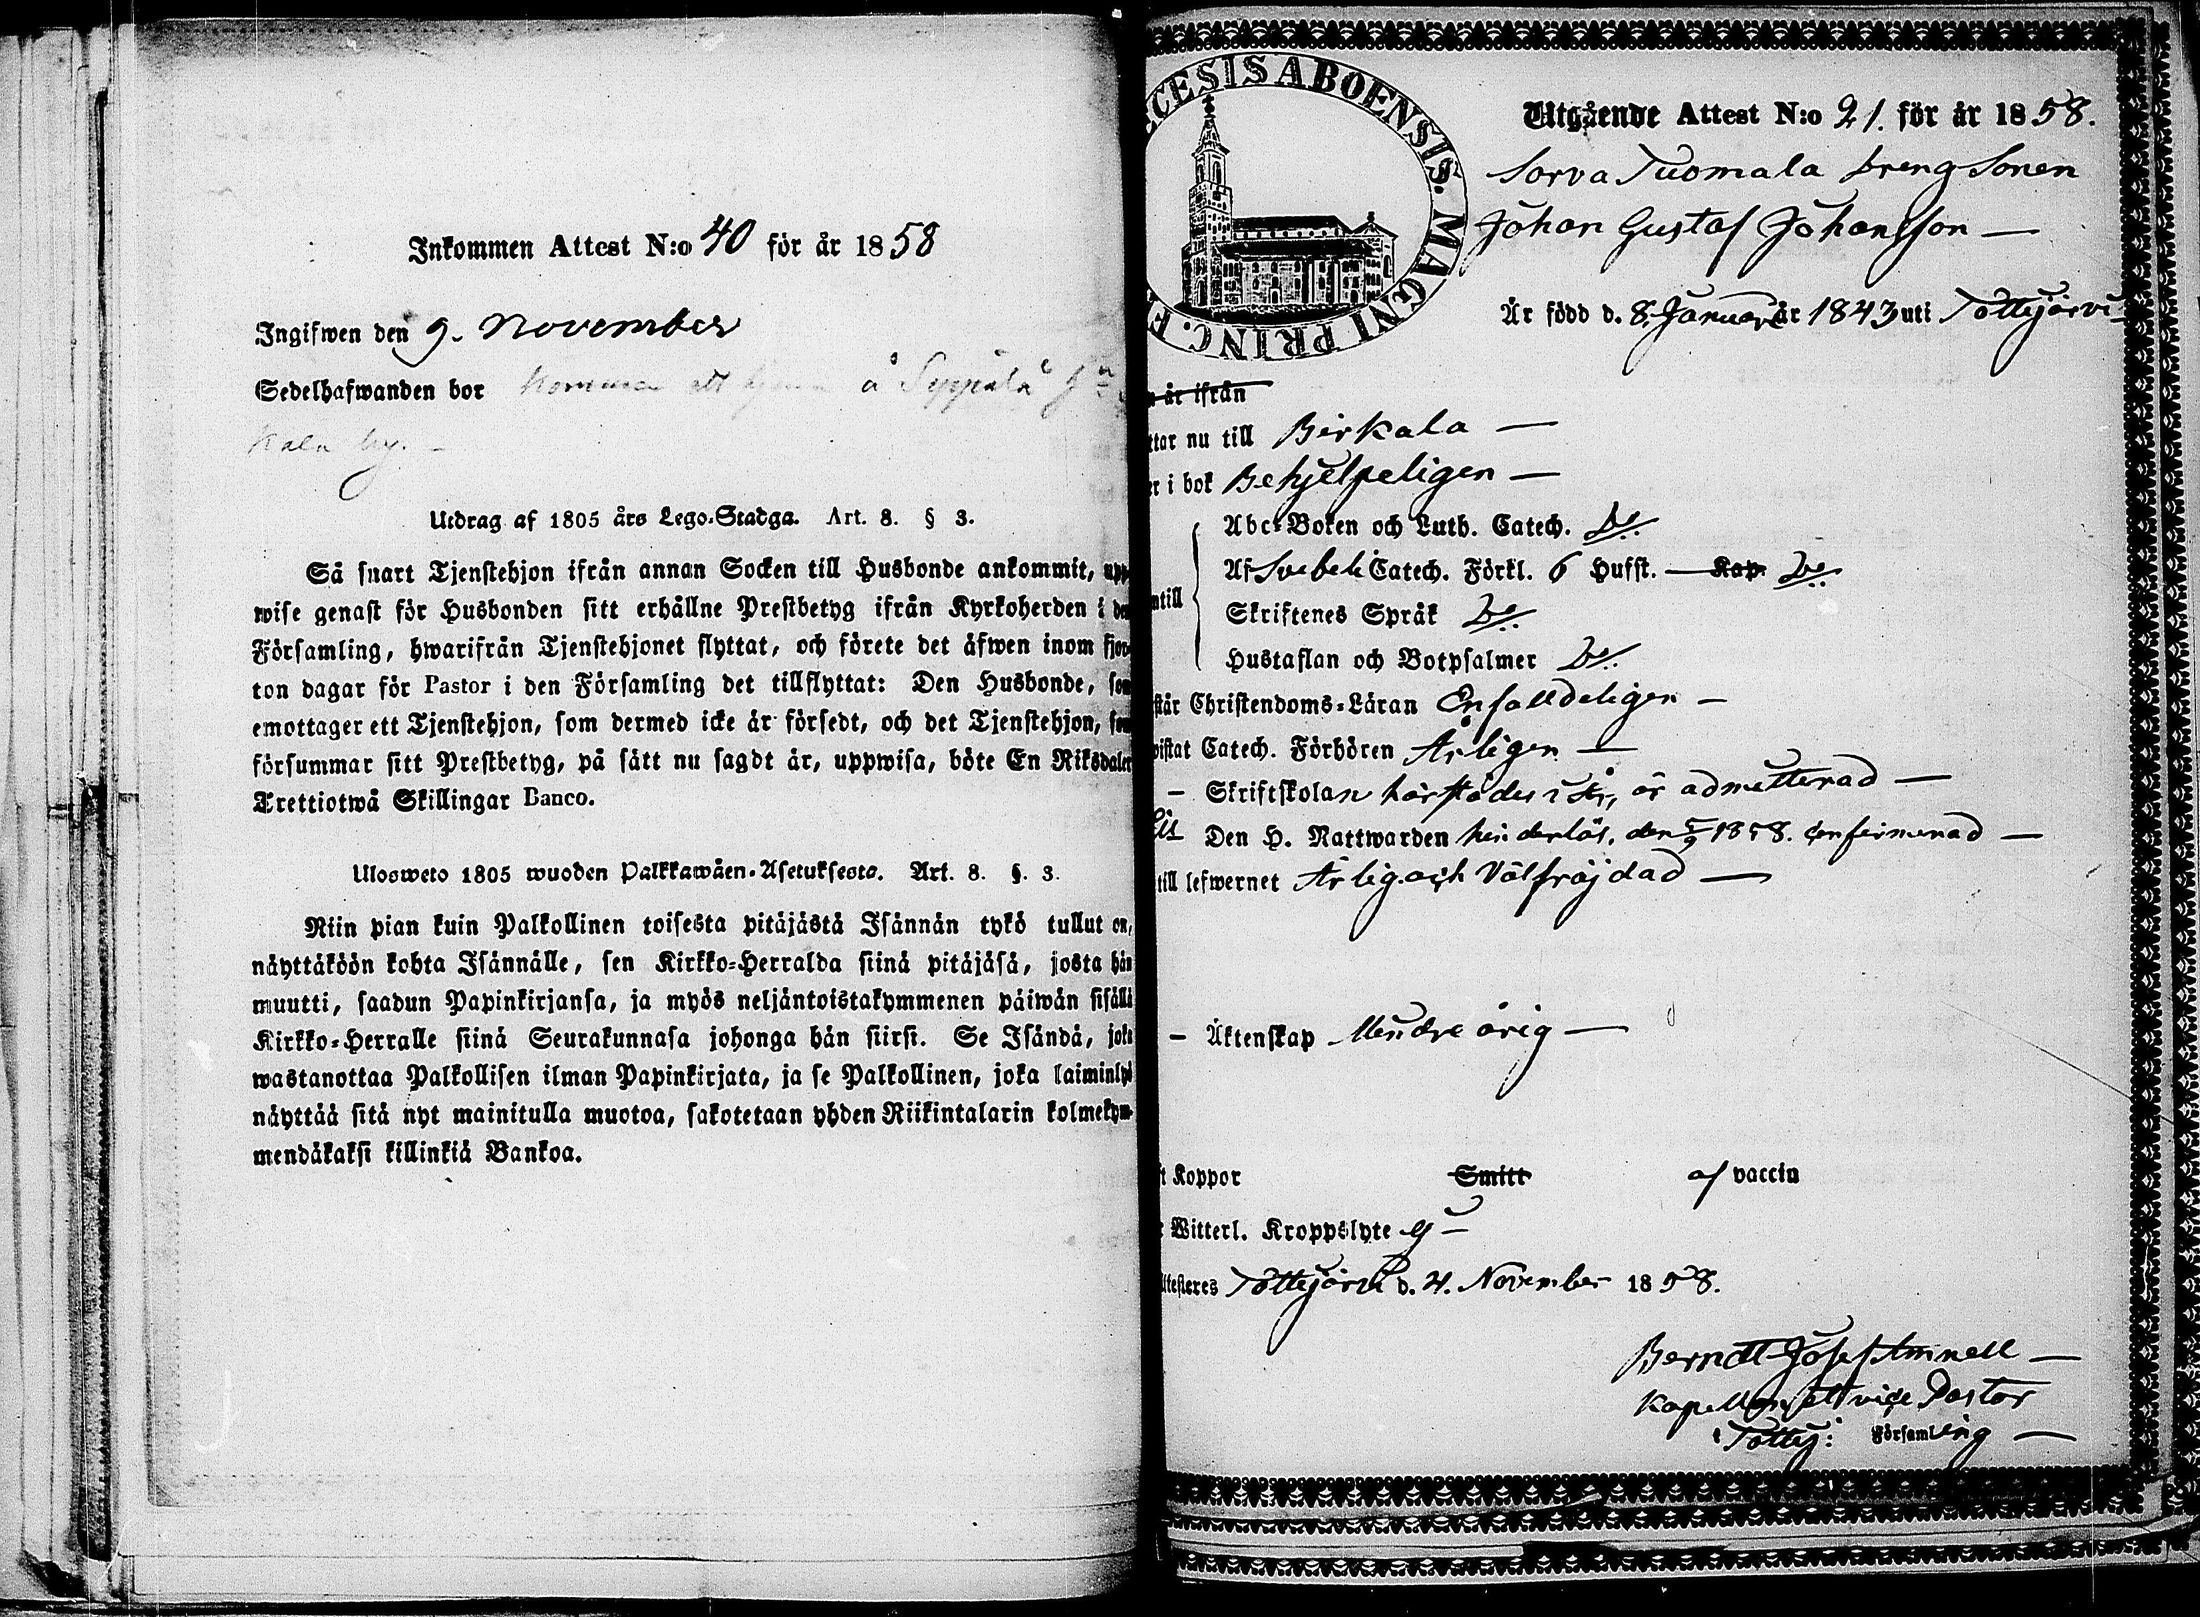 Inkommen Attest N:o 40 för år 1858
Ingifwen den 9. November
Sedelhafwanden bor kommer att tjena å Syypälä
kala by. –
Utdrag af 1805 års Lego-Stadga. Art. 8. § 3.
Så snart Tjenstehjon ifrån annan Socken till Husbonde ankommit, upp-
wise genast för Husbonden sitt erhållne Prestbetyg ifrån Kyrkoherden i den
Församling, hwarifrån Tjenstehjonet flyttat, och förete det äfwen inom fjor-
ton dagar för Pastor i den Församling det tillflyttat: Den Husbonde, som
emottager ett Tjenstehjon, som dermed icke är försedt, och det Tjenstehjon, som
försummar sitt Prestbetyg, på sätt nu sagdt är, uppwisa, böte En Riksdaler
Trettiotwå Skillingar Banco.
Ulosweto 1805 wuoden Palkkawäen-Asetuksesta. Art. 8. §. 3.
Niin pian kuin Palkollinen toisesta pitäjästä Isännän tykö tullut on,
näyttäköön kohta Isännälle, sen Kirkko-Herralda siinä pitäjäsä, josta hän
muutti, saadun Papinkirjansa, ja myös neljäntoistakymmenen päiwän sisällä
Kirkko-Herralle siinä Seurakunnasa johonga hän siirsi. Se Isändä, joka
wastanottaa Palkollisen ilman Papinkirjata, ja se Palkollinen, joka laiminlyö
näyttää sitä nyt mainitulla muotoa, sakotetaan yhden Riikintalarin kolmekym-
mendäkaksi killinkiä Bankoa.
CESIS ABOENSIS. MAGNI PRINC. F
Utgående Attest N:o 21. för år 1858.
Sorva Tuomala dreng Sonen
Johan Gustaf Johansson —
Är född d. 8. Januari år 1843 uti Tottijärvi –
är ifrån
ttar nu till Birkala —
er i bok Behjelpeligen —
Abc-Boken och Luth. Catech. do
Af Svebeli Catech. Förkl. 6 Hufst. — Kap. do
ntill
Skriftenes Språk do
Hustaflan och Botpsalmer do
står Christendoms-Läran Enfalldeligen –
wistat Catech. Förhören Årligen —
– Skriftskolan härstädes i år, är admitterad —
Den H. Nattwarden hinderlös, den 5/9 1858. confirmerad —
till lefwernet Ärlig och Välfräjdad —
– Äktenskap Mindre årig —
t Koppor Smitt af vaccin
Witterl. Kroppslyte Ej –
Attesteres Tottijärvi d. 4. November 1858.
Berndt Josef Amnell —
Kapellan, samt vice Pastor
i Tottij: Församling —